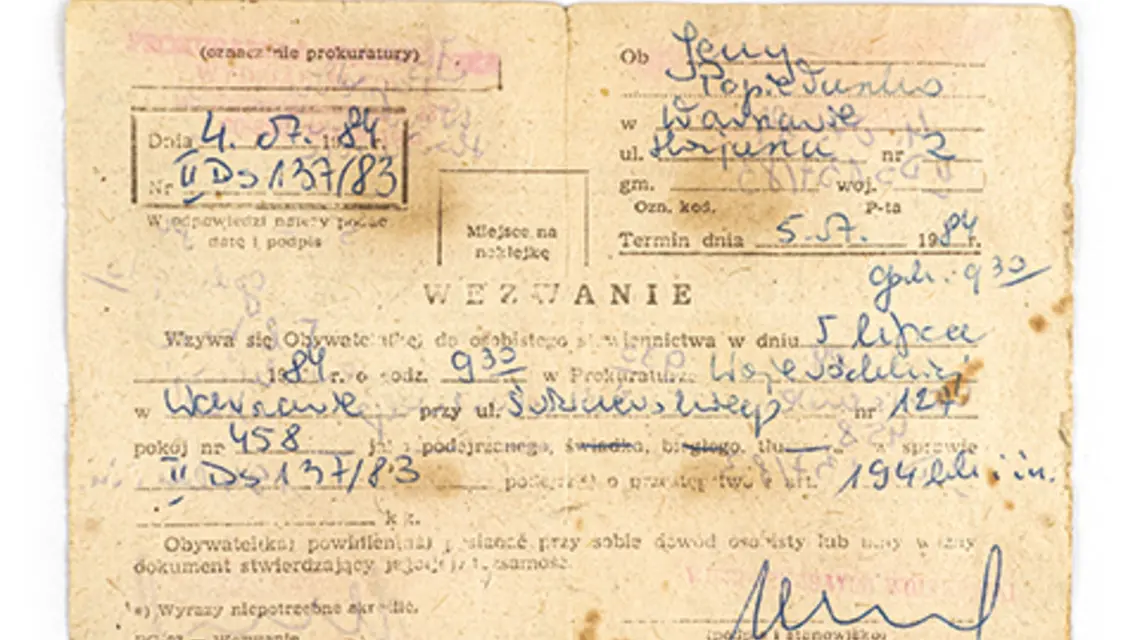 (oznaczenie prokuratury)
Dnia 4. VII. 1984
Nr II Ds 137/83
W odpowiedzi należy podać
datę i podpis
Miejsce na
naklejkę
Ob Jerzy
Popiełuszko
w Warszawie
ul. nr 2
gm. woj.
Ozn. kod. P-ta
Termin dnia 5. VII. 1984 r.
godz. 9 30
WEZWANIE
Wzywa się Obywatela(tkę) do osobistego stawiennictwa w dniu 5 lipca
1984 r. o godz. 9 30 w Prokuraturze Wojewódzkiej
w Warszawie przy ul. nr 127
pokój nr 458 jako podejrzanego, świadka, biegłego, sprawie
II Ds 137/83 podejrz o przestępstwo z art. 194 kk i in.
k k.
Obywatel(ka) powinien(na) posiadać przy sobie dowód osobisty lub inny ważny
dokument stwierdzający jego(jej) tożsamość.
*) Wyrazy niepotrzebne skreślić.
(podpis i stanowisko)